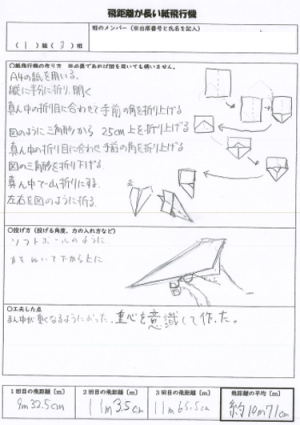 飛距離が長い紙飛行機
班のメンバー（※出席番号と氏名を記入）
( 1 )組( 3 )班
○紙飛行機の作り方 ※必要であれば図を用いても構いません。
A4の紙を用いる。
縦に半分に折り、開く
真ん中の折り目に合わせて手前の角を折り上げる
図のように三角形から 2.5cm 上を折り上げる
真ん中の折り目に合わせて手前の角を折り上げる
図の三角形を折り下げる。
真ん中で山折りにする。
左右を図のように折る。
○投げ方（投げる角度、力の入れ方など）
ソフトボールのように
力をぬいて下から上に
○工夫した点
まん中が重くなるように折った。重心を意識して作った。
1回目の飛距離（m）
2回目の飛距離（m）
3回目の飛距離（m）
飛距離の平均（m）
9m 32.5cm
11m 3.5cm
11m 65.5cm
約10m71cm